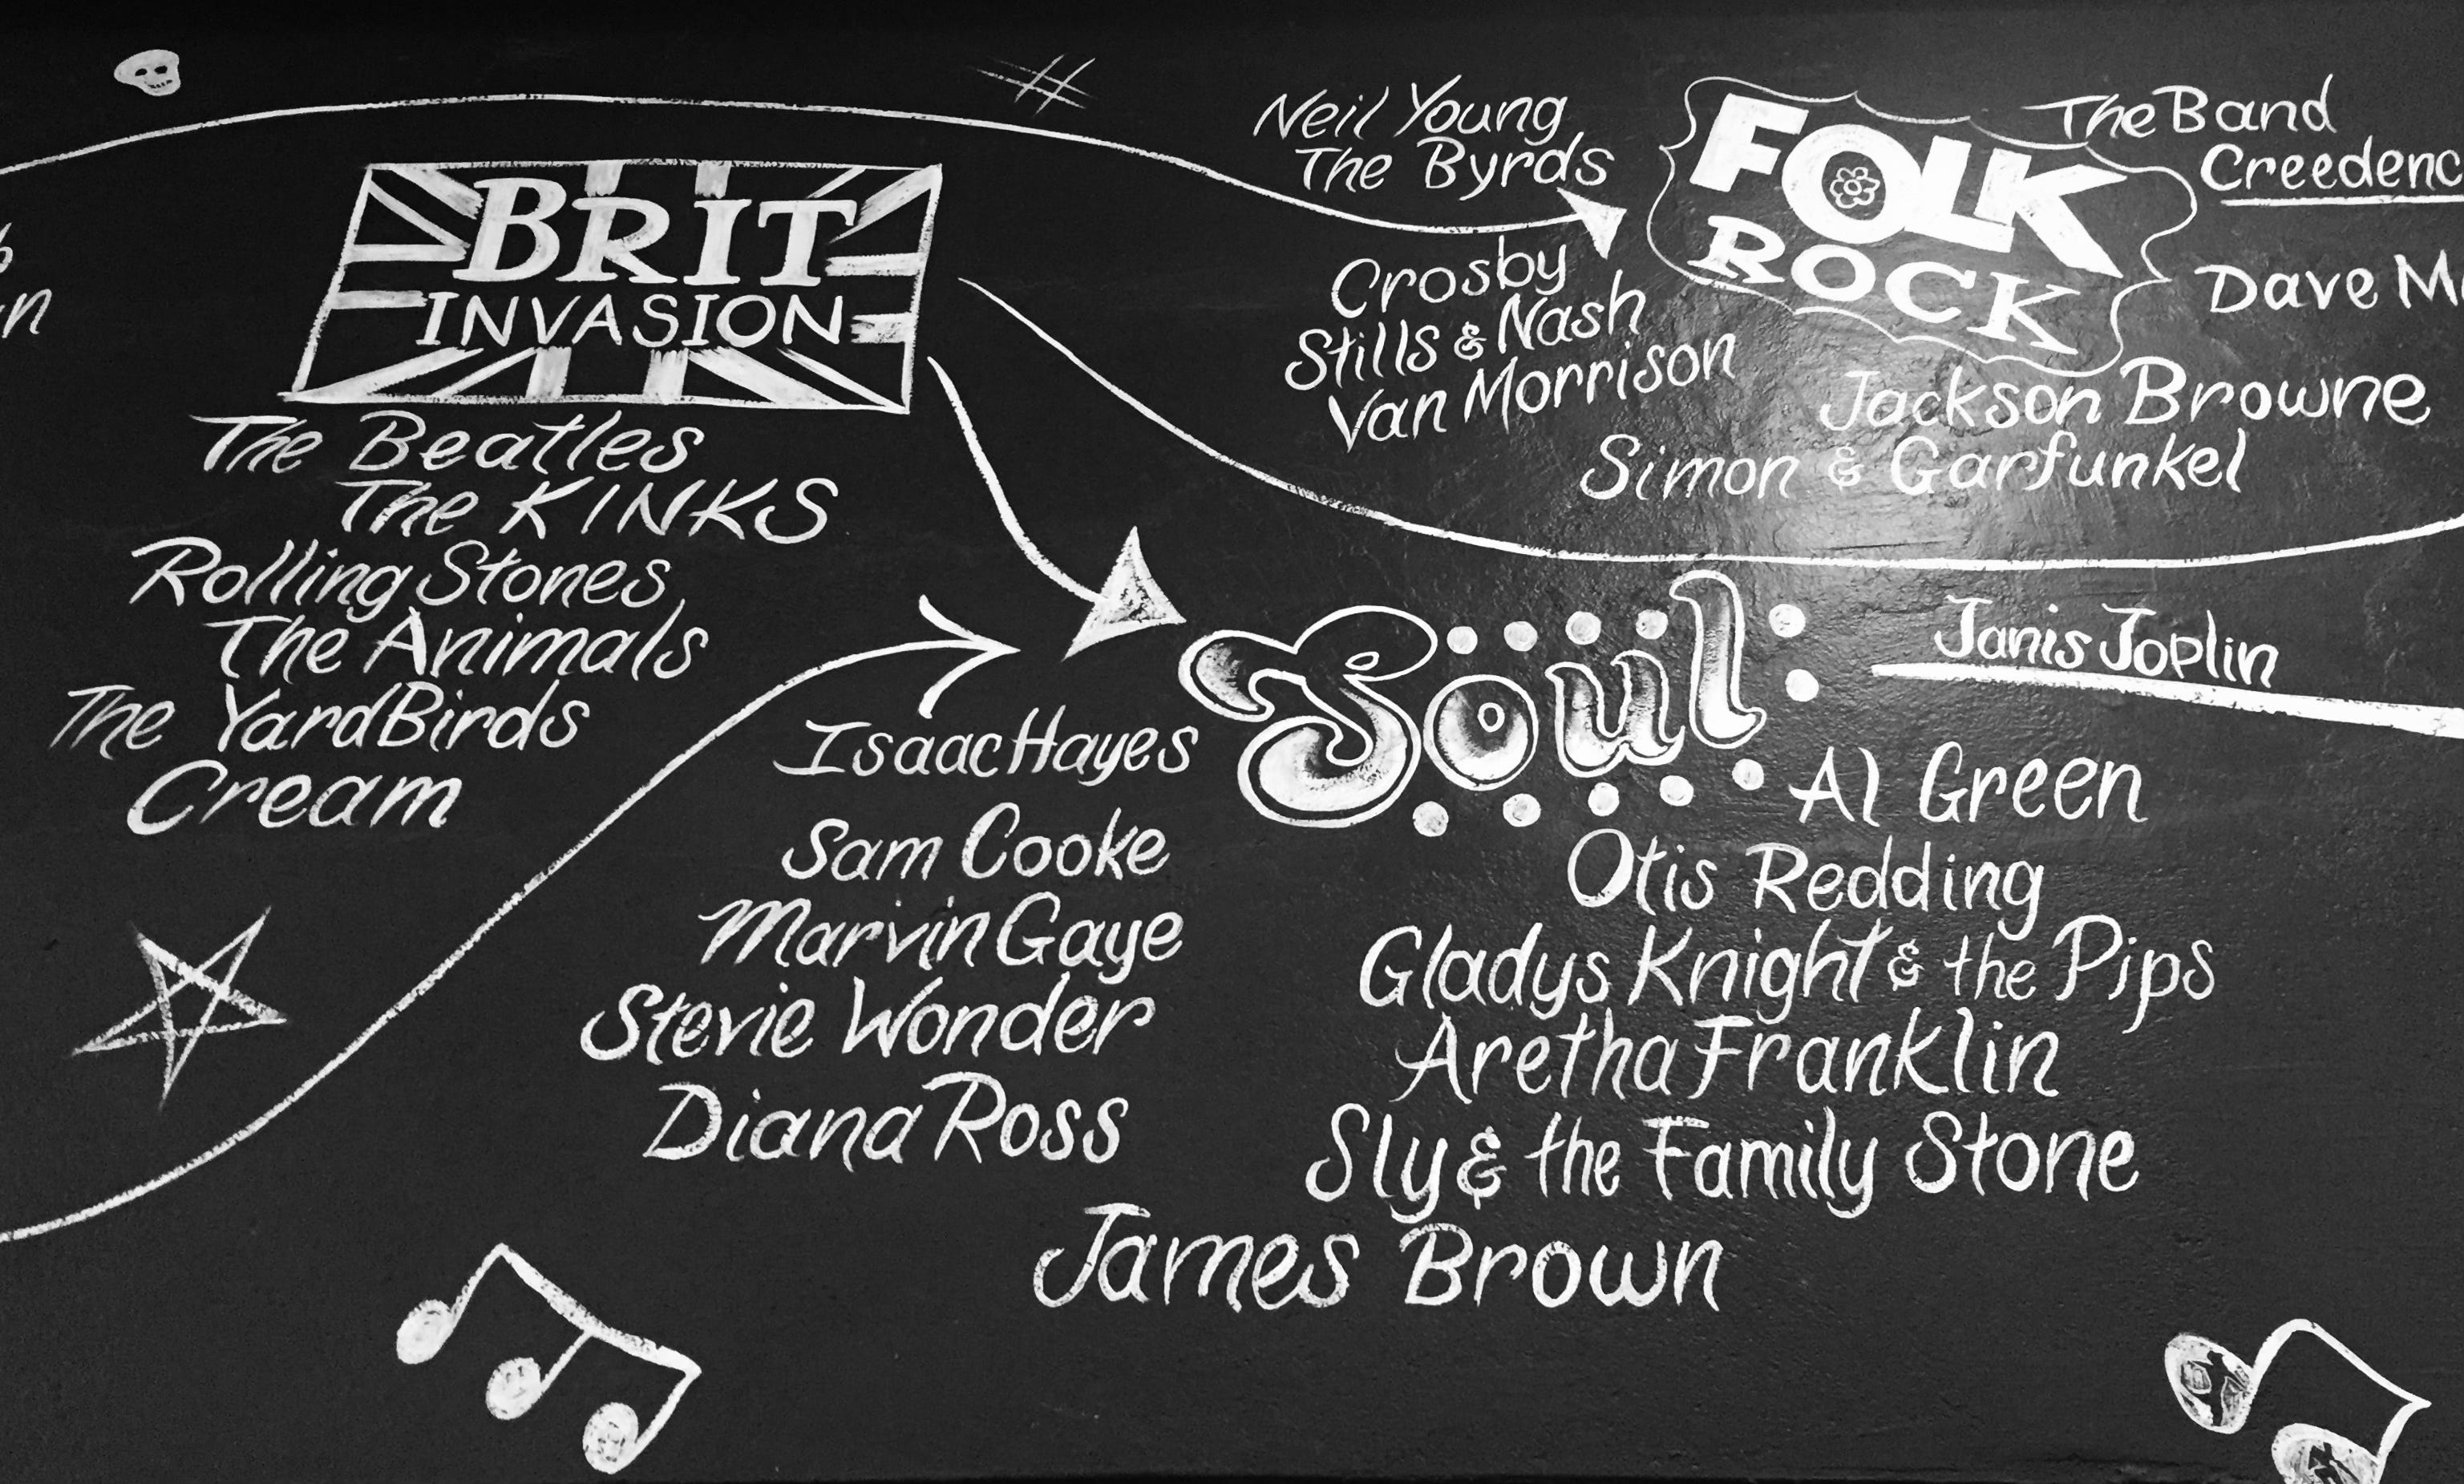 BRIT
INVASION
The Beatles
The KINKS
Rolling Stones
The Animals
The YardBirds
Cream
Neil Young
The Byrds
Crosby
Stills & Nash
Van Morrison
FOLK
ROCK
The Band
Creedenc
Dave M
Jackson Browne
Simon & Garfunkel
Soul
Janis Joplin
Isaac Hayes
Sam Cooke
Marvin Gaye
Stevie Wonder
Diana Ross
Al Green
Otis Redding
Gladys Knight & the Pips
Aretha Franklin
Sly & the Family Stone
James Brown